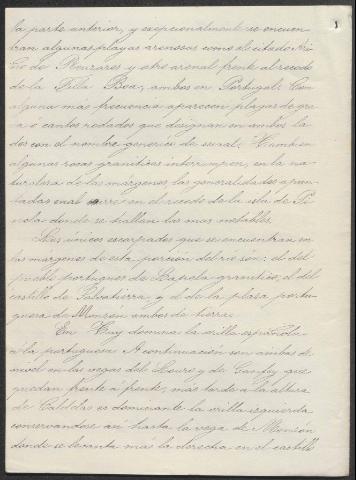 1
la parte anterior, y excepcionalmente se encuen-
tran algunas playas arenosas como el citado Are-
no de y otro arenal frente al recodo
de la Filla Boa, ambos en Portugal. Con
alguna más frecuencia aparecen playas de gra-
va ó cantos rodados que designan en ambos la-
dos con el nombre generico de Tambien
algunas rocas graniticas interrumpen, en la na-
turaleza de las márgenes, las generalidades apun-
tadas cual ocurre en el recodo de la isla de
donde se hallan las mas notables.
Los únicos escarpados que se encuentran en
las márgenes de esta porción del rio son: el del
pueblo portugues de Lapela granitico, el del
castillo de Salvatierra, y el de la plaza portu-
guesa de Monzon ambos de tierra.
En Tuy domina la orilla española
á la portuguesa. A continuación son ambas de
nivel en las vegas del Louro y de Ganfey que
quedan frente á frente; mas tarde a la altura
de Caldelas es dominante la orilla izquierda
conservandose asi hasta la vega de Monzón
donde se levanta más la derecha en el castillo